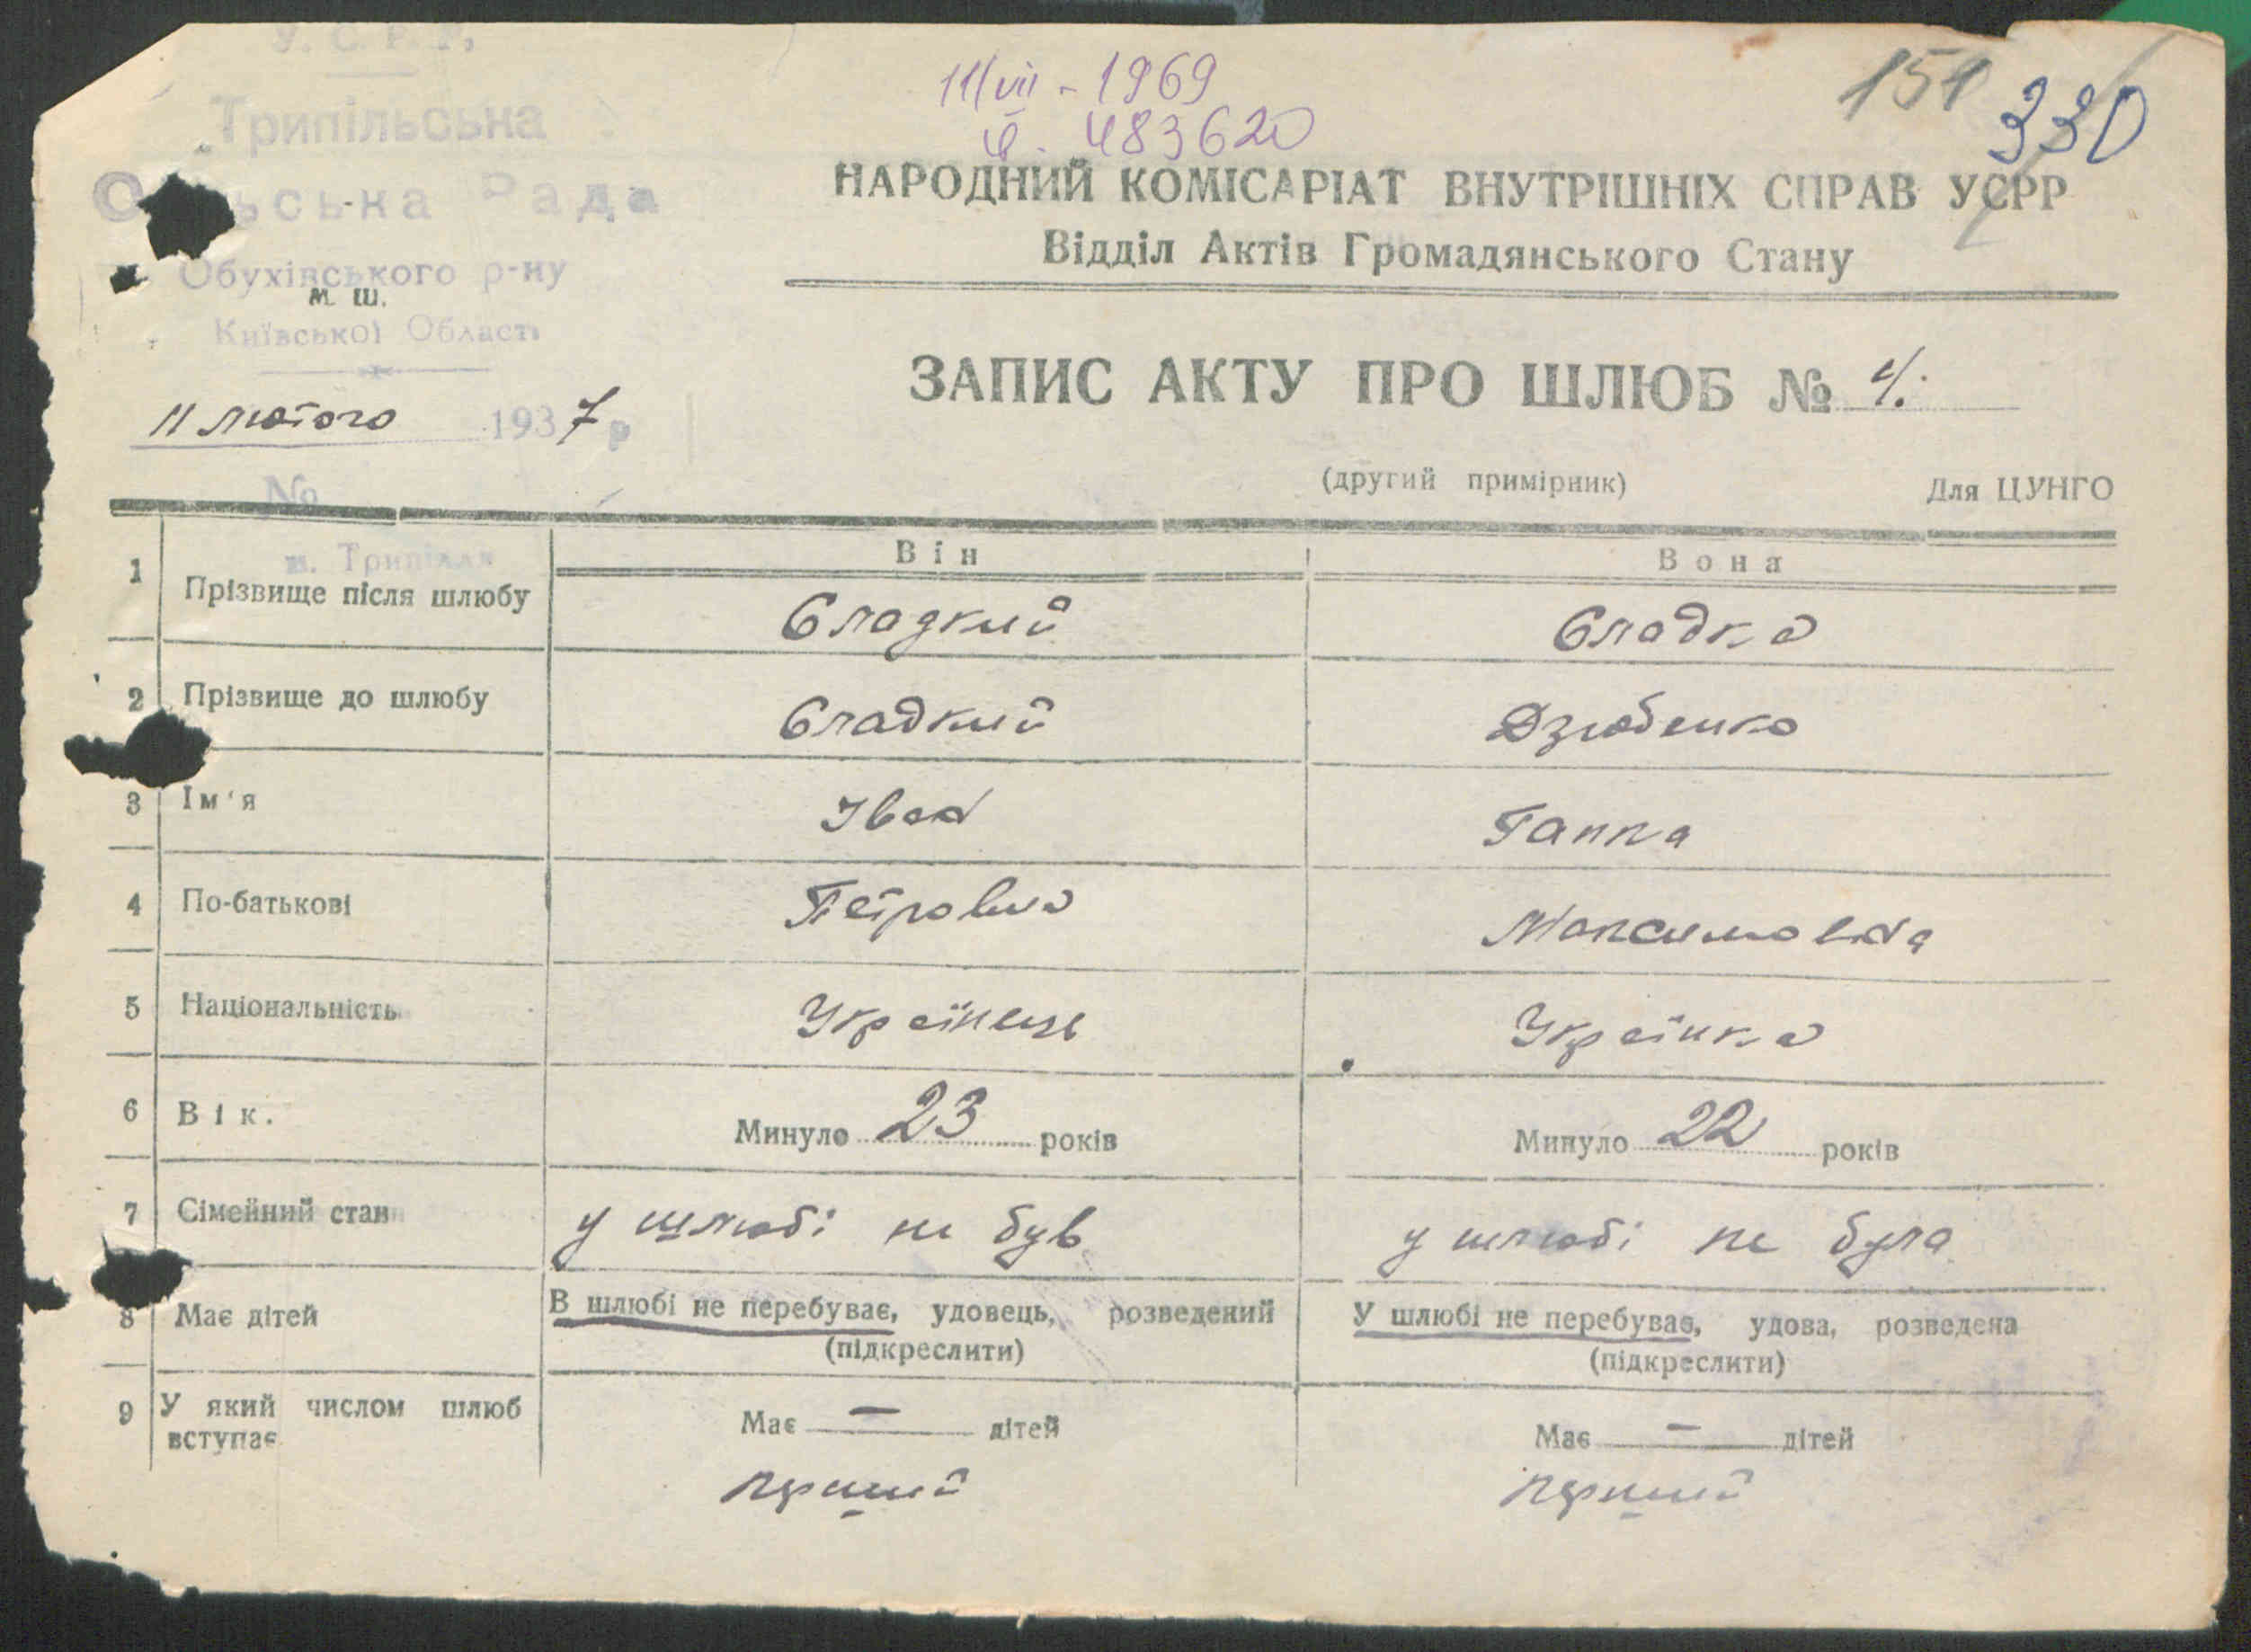 У. С. Р. Р.
11/VII - 1969
151
330
Трипільська
483620
НАРОДНИЙ КОМІСАРІАТ ВНУТРІШНІХ СПРАВ УСРР
Рада
Відділ Актів Громадянського Стану
Обухівського р-ну
М. Ш.
Київської Області
ЗАПИС АКТУ ПРО ШЛЮБ № 4.
11 лютого 1937 р
(другий примірник) Для ЦУНГО
№
Він Вона
1 с. Трипілля
Прізвище після шлюбу Сладкий Сладка
2 Прізвище до шлюбу Сладкий Дзюбенко
3 Ім'я Іван Ганна
4 По-батькові Петрович Максимовна
5 Національність Українець Українка
6 Вік. Минуло 23 років Минуло 22 років
7 Сімейний стан у шлюбі не був у шлюбі не була
8 Має дітей В шлюбі не перебуває, удовець, розведений У шлюбі не перебуває, удова, розведена
(підкреслити) (підкреслити)
9 У який числом шлюб
вступає Має — дітей Має — дітей
перший перший